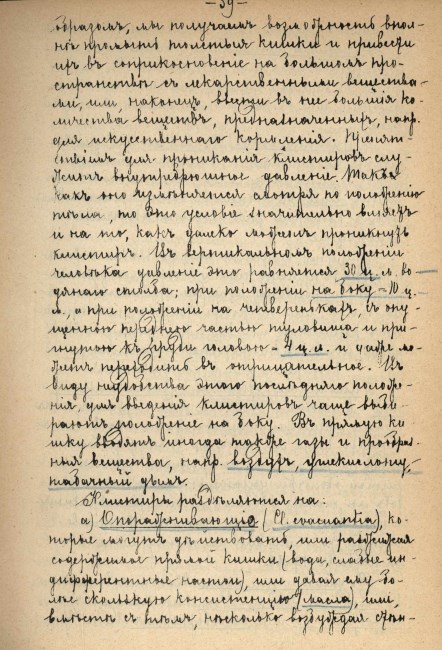 — 39 —
образомъ, мы получаемъ возможность впол-
нѣ промыть толстыя кишки и привести
ихъ въ соприкосновеніе на большомъ про-
странствѣ съ лекарственными вещества-
ми, или, наконецъ, ввести въ нихъ большія ко-
личества веществъ, предназначенныхъ, напр.
для искусственнаго кормленія. Препят-
ствіемъ для проникания клистировъ слу-
житъ внутрибрюшное давленіе. Такъ
какъ оно измѣняется смотря по положенію
тѣла, то это условіе значительно вліяетъ
и на то, какъ далеко можетъ проникнуть
клистиръ. Въ вертикальномъ положеніи
человѣка давленіе это равняется 30 ц. м. во-
дяного столба; при положеніи на боку = 10 ц.
м., а при положеніи на четверенькахъ, съ опу-
щенною переднею частью туловища и при-
гнутою къ груди головою = 4 ц. м. и даже мо-
жетъ переходить въ отрицательное. Въ
виду неудобства этого послѣдняго положе-
нія, для введенія клистировъ чаще выби-
раютъ положеніе на боку. Въ прямую ки-
шку вводятъ иногда также газы и преобраз-
ныя вещества, напр. воздухъ, углекислоту,
табачный дымъ.
Клистиры раздѣляются на:
а) Опоражнивающіе (Cl. evacuantia), ко-
торые могутъ дѣйствовать, или разжижая
содержимое прямой кишки (вода, слабые ин-
дифферентные настои), или давая ему бо-
лѣе скользкую консистенцію (масла), или,
вмѣстѣ съ тѣмъ, нѣсколько возбуждая стѣн-